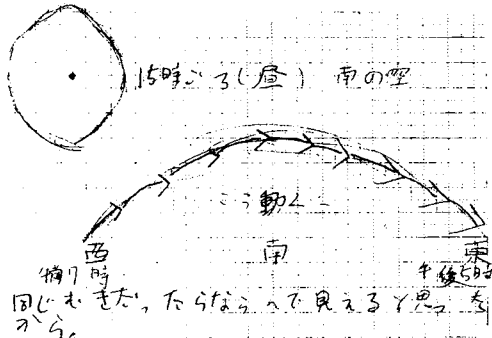 15時ごろ(昼) 南の空
こう動く
西 南 東
時 午後5時
同じむきだったらならんで見えると思った
から。